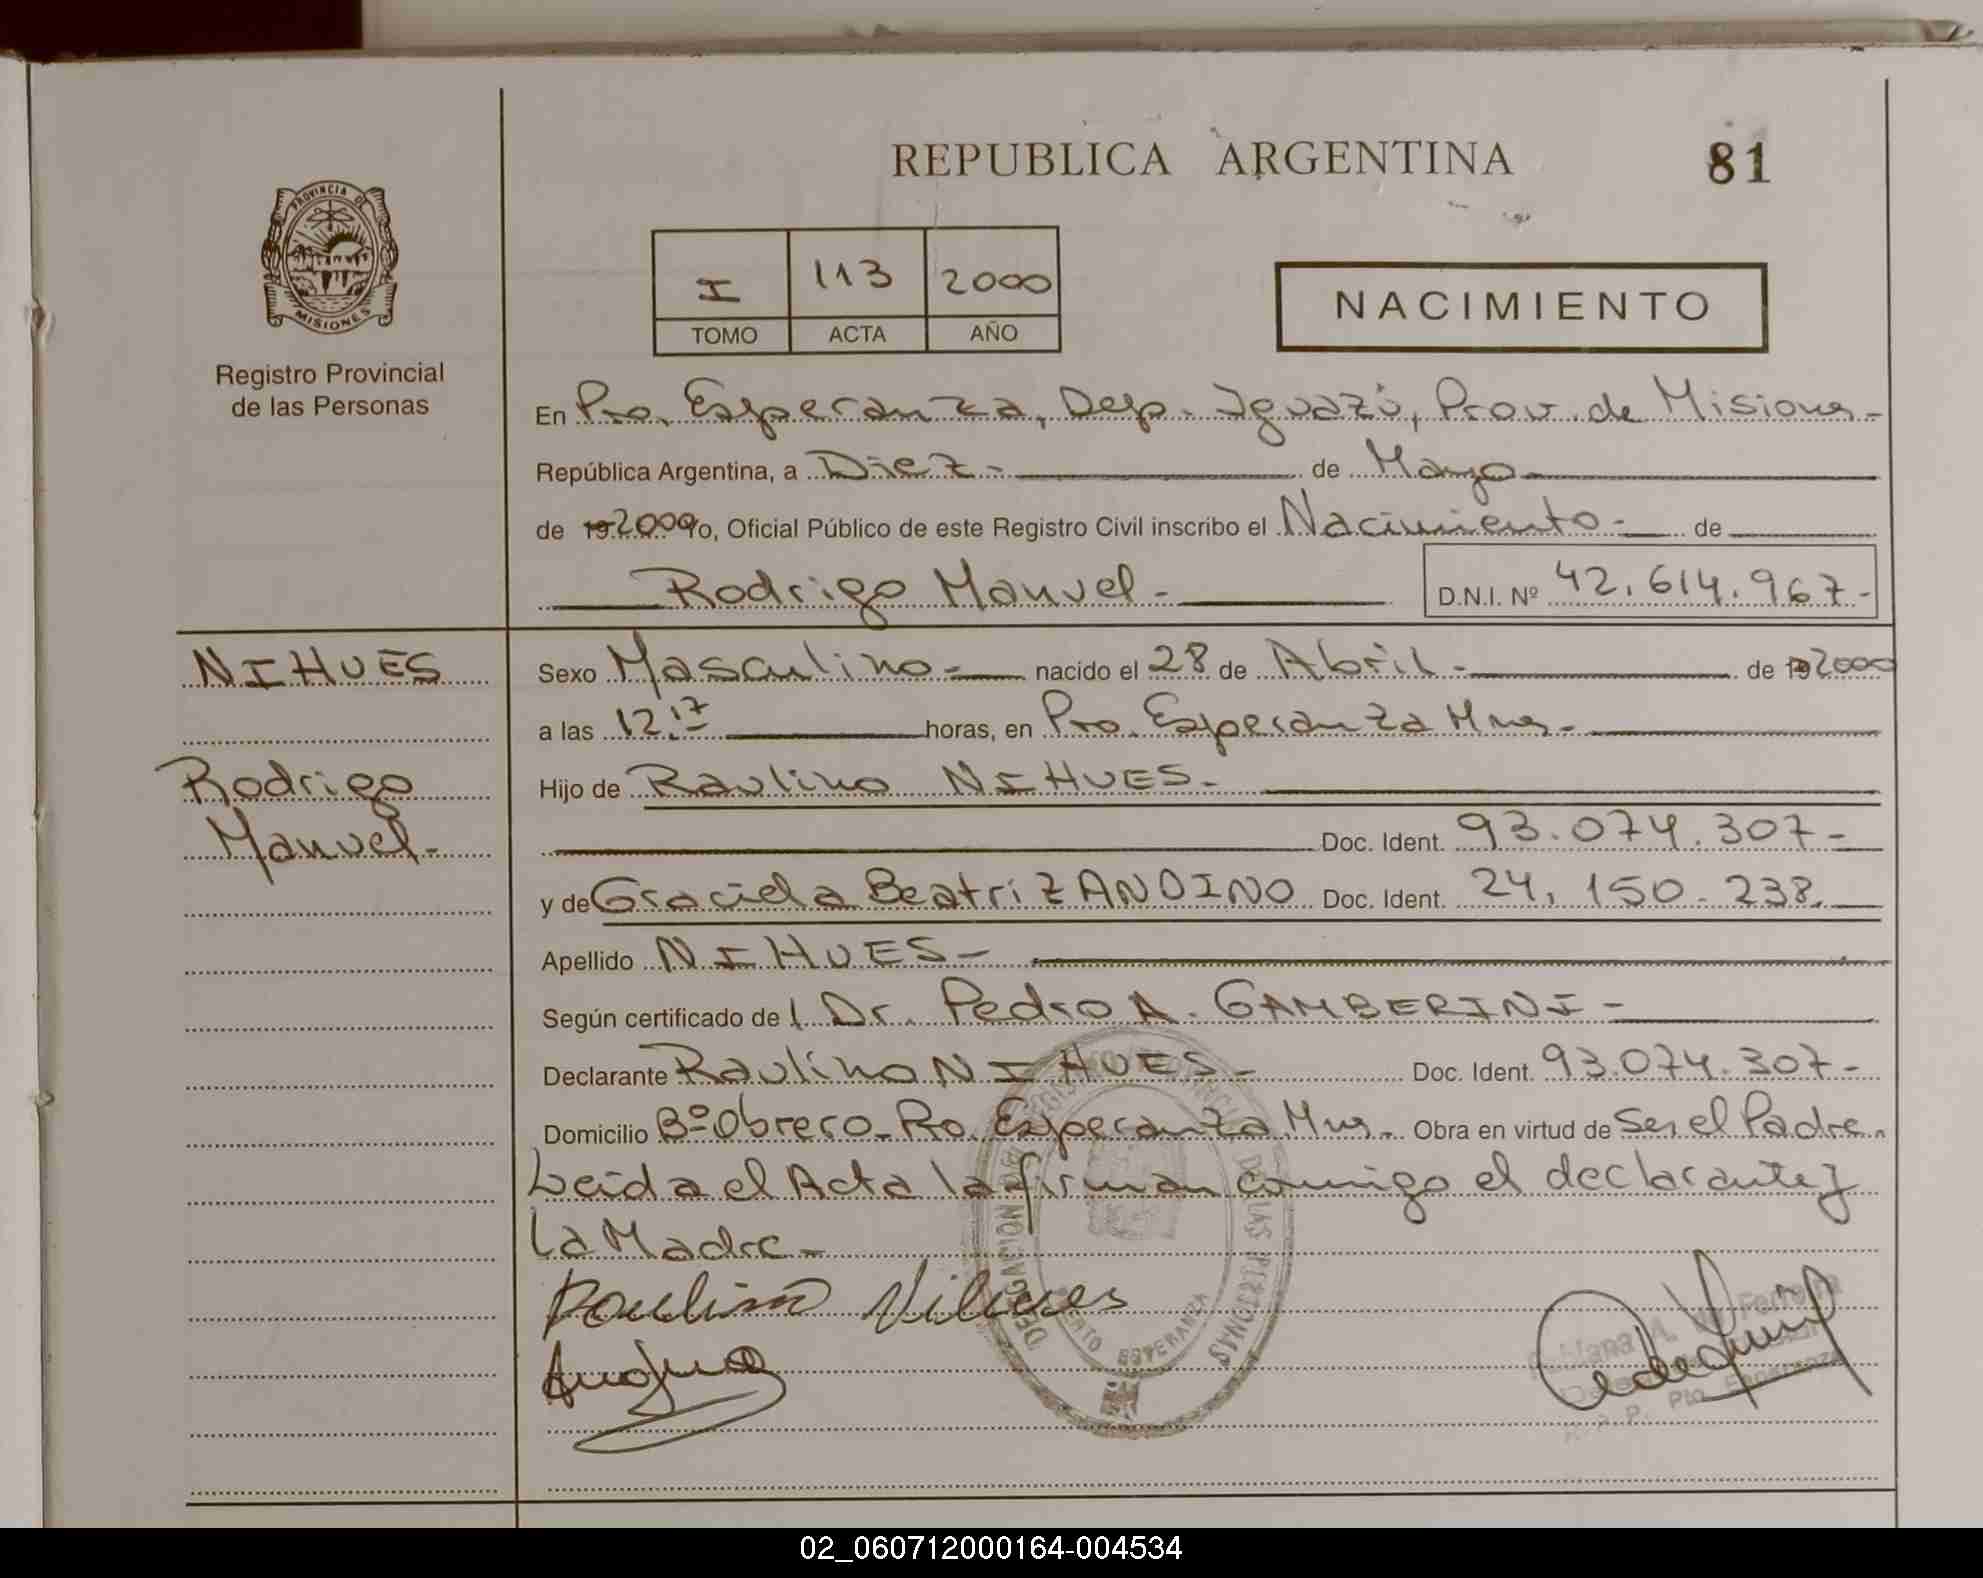 REPUBLICA ARGENTINA
81
PROVINCIA DE
MISIONES
Registro Provincial
de las Personas
I 113 2000
TOMO ACTA AÑO
NACIMIENTO
En Pto. Esperanza, Dep. Iguazú, Prov. de Misiones-
República Argentina, a Diez- de Marzo
de 19 2000 Yo, Oficial Público de este Registro Civil inscribo el Nacimiento- de
Rodrigo Manuel- D.N.I. Nº 42.614.967-
NIHUES
Rodrigo
Manuel-
Sexo Masculino- nacido el 28 de Abril- de 19 2000
a las 12.17 horas, en Pto. Esperanza Mnes-
Hijo de Raulino NIHUES-
Doc. Ident. 93.074.307-
y de Graciela Beatriz ANDINO Doc. Ident. 24.150.238.
Apellido NIHUES-
Según certificado del Dr. Pedro A. GAMBERINI-
Declarante Raulino NIHUES- Doc. Ident. 93.074.307-
Domicilio Bº Obrero- Pto. Esperanza Mnes. Obra en virtud de Ser el Padre.
Leida el Acta la firman conmigo el declarante y
La Madre-
Raulino Nihues
DE LAS PERSONAS
DELEGACION
ESPERANZA
Ferreira
R. P. P. Pto. Esperanza
02_060712000164-004534